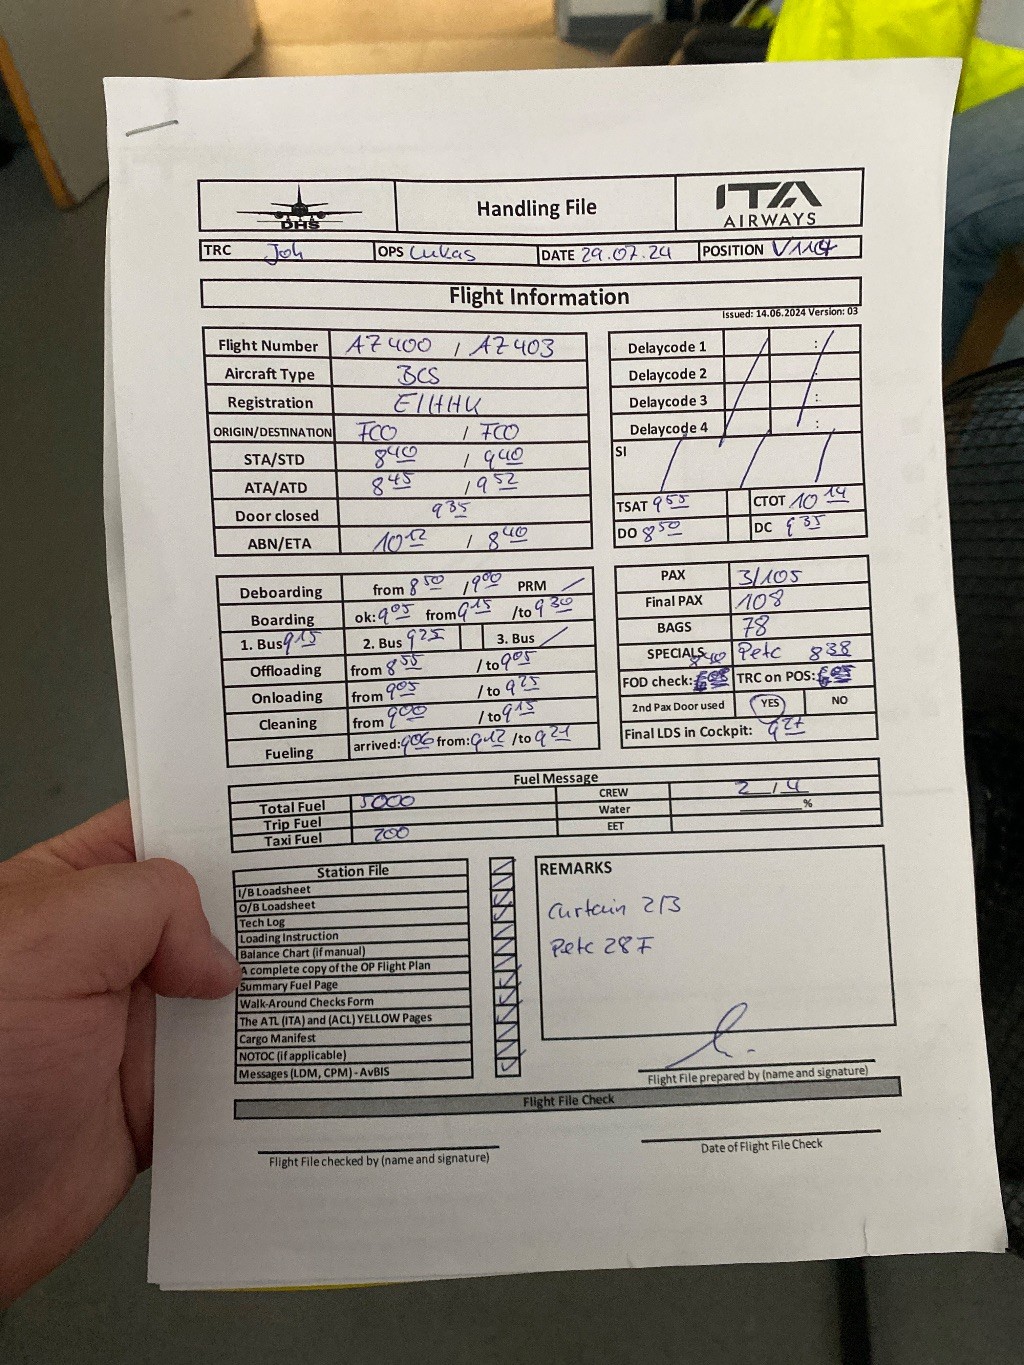 DHS Handling File ITA AIRWAYS
TRC Joh OPS Lukas DATE 29.07.24 POSITION V114
Flight Information
Issued: 14.06.2024 Version: 03
Flight Number AZ 400 / AZ 403
Aircraft Type BCS
Registration EIHHU
ORIGIN/DESTINATION FCO / FCO
STA/STD 8 40 / 9 40
ATA/ATD 8 45 / 9 52
Door closed 9 35
ABN/ETA 10 12 / 8 40
Delaycode 1 :
Delaycode 2 :
Delaycode 3 :
Delaycode 4 :
SI
TSAT 9 55 CTOT 10 14
DO 8 50 DC 9 35
Deboarding from 8 50 / 9 00 PRM /
Boarding ok: 9 05 from 9 15 /to 9 30
1. Bus 9 15 2. Bus 9 25 3. Bus /
Offloading from 8 55 / to 9 05
Onloading from 9 05 / to 9 25
Cleaning from 9 00 / to 9 15
Fueling arrived: 9 06 from: 9 12 /to 9 21
PAX 3/105
Final PAX 108
BAGS 78
SPECIALS Petc
840 838
FOD check: TRC on POS:
2nd Pax Door used YES NO
Final LDS in Cockpit: 9 27
Fuel Message
Total Fuel 5000 CREW 2 / 4
Trip Fuel Water %
Taxi Fuel 200 EET
Station File
I/B Loadsheet
O/B Loadsheet
Tech Log
Loading Instruction
Balance Chart (if manual)
A complete copy of the OP Flight Plan
Summary Fuel Page
Walk-Around Checks Form
The ATL (ITA) and (ACL) YELLOW Pages
Cargo Manifest
NOTOC (if applicable)
Messages (LDM, CPM) - AvBIS
REMARKS
Curtain 2/3
Petc 28F
Flight File prepared by (name and signature)
Flight File Check
Flight File checked by (name and signature)
Date of Flight File Check